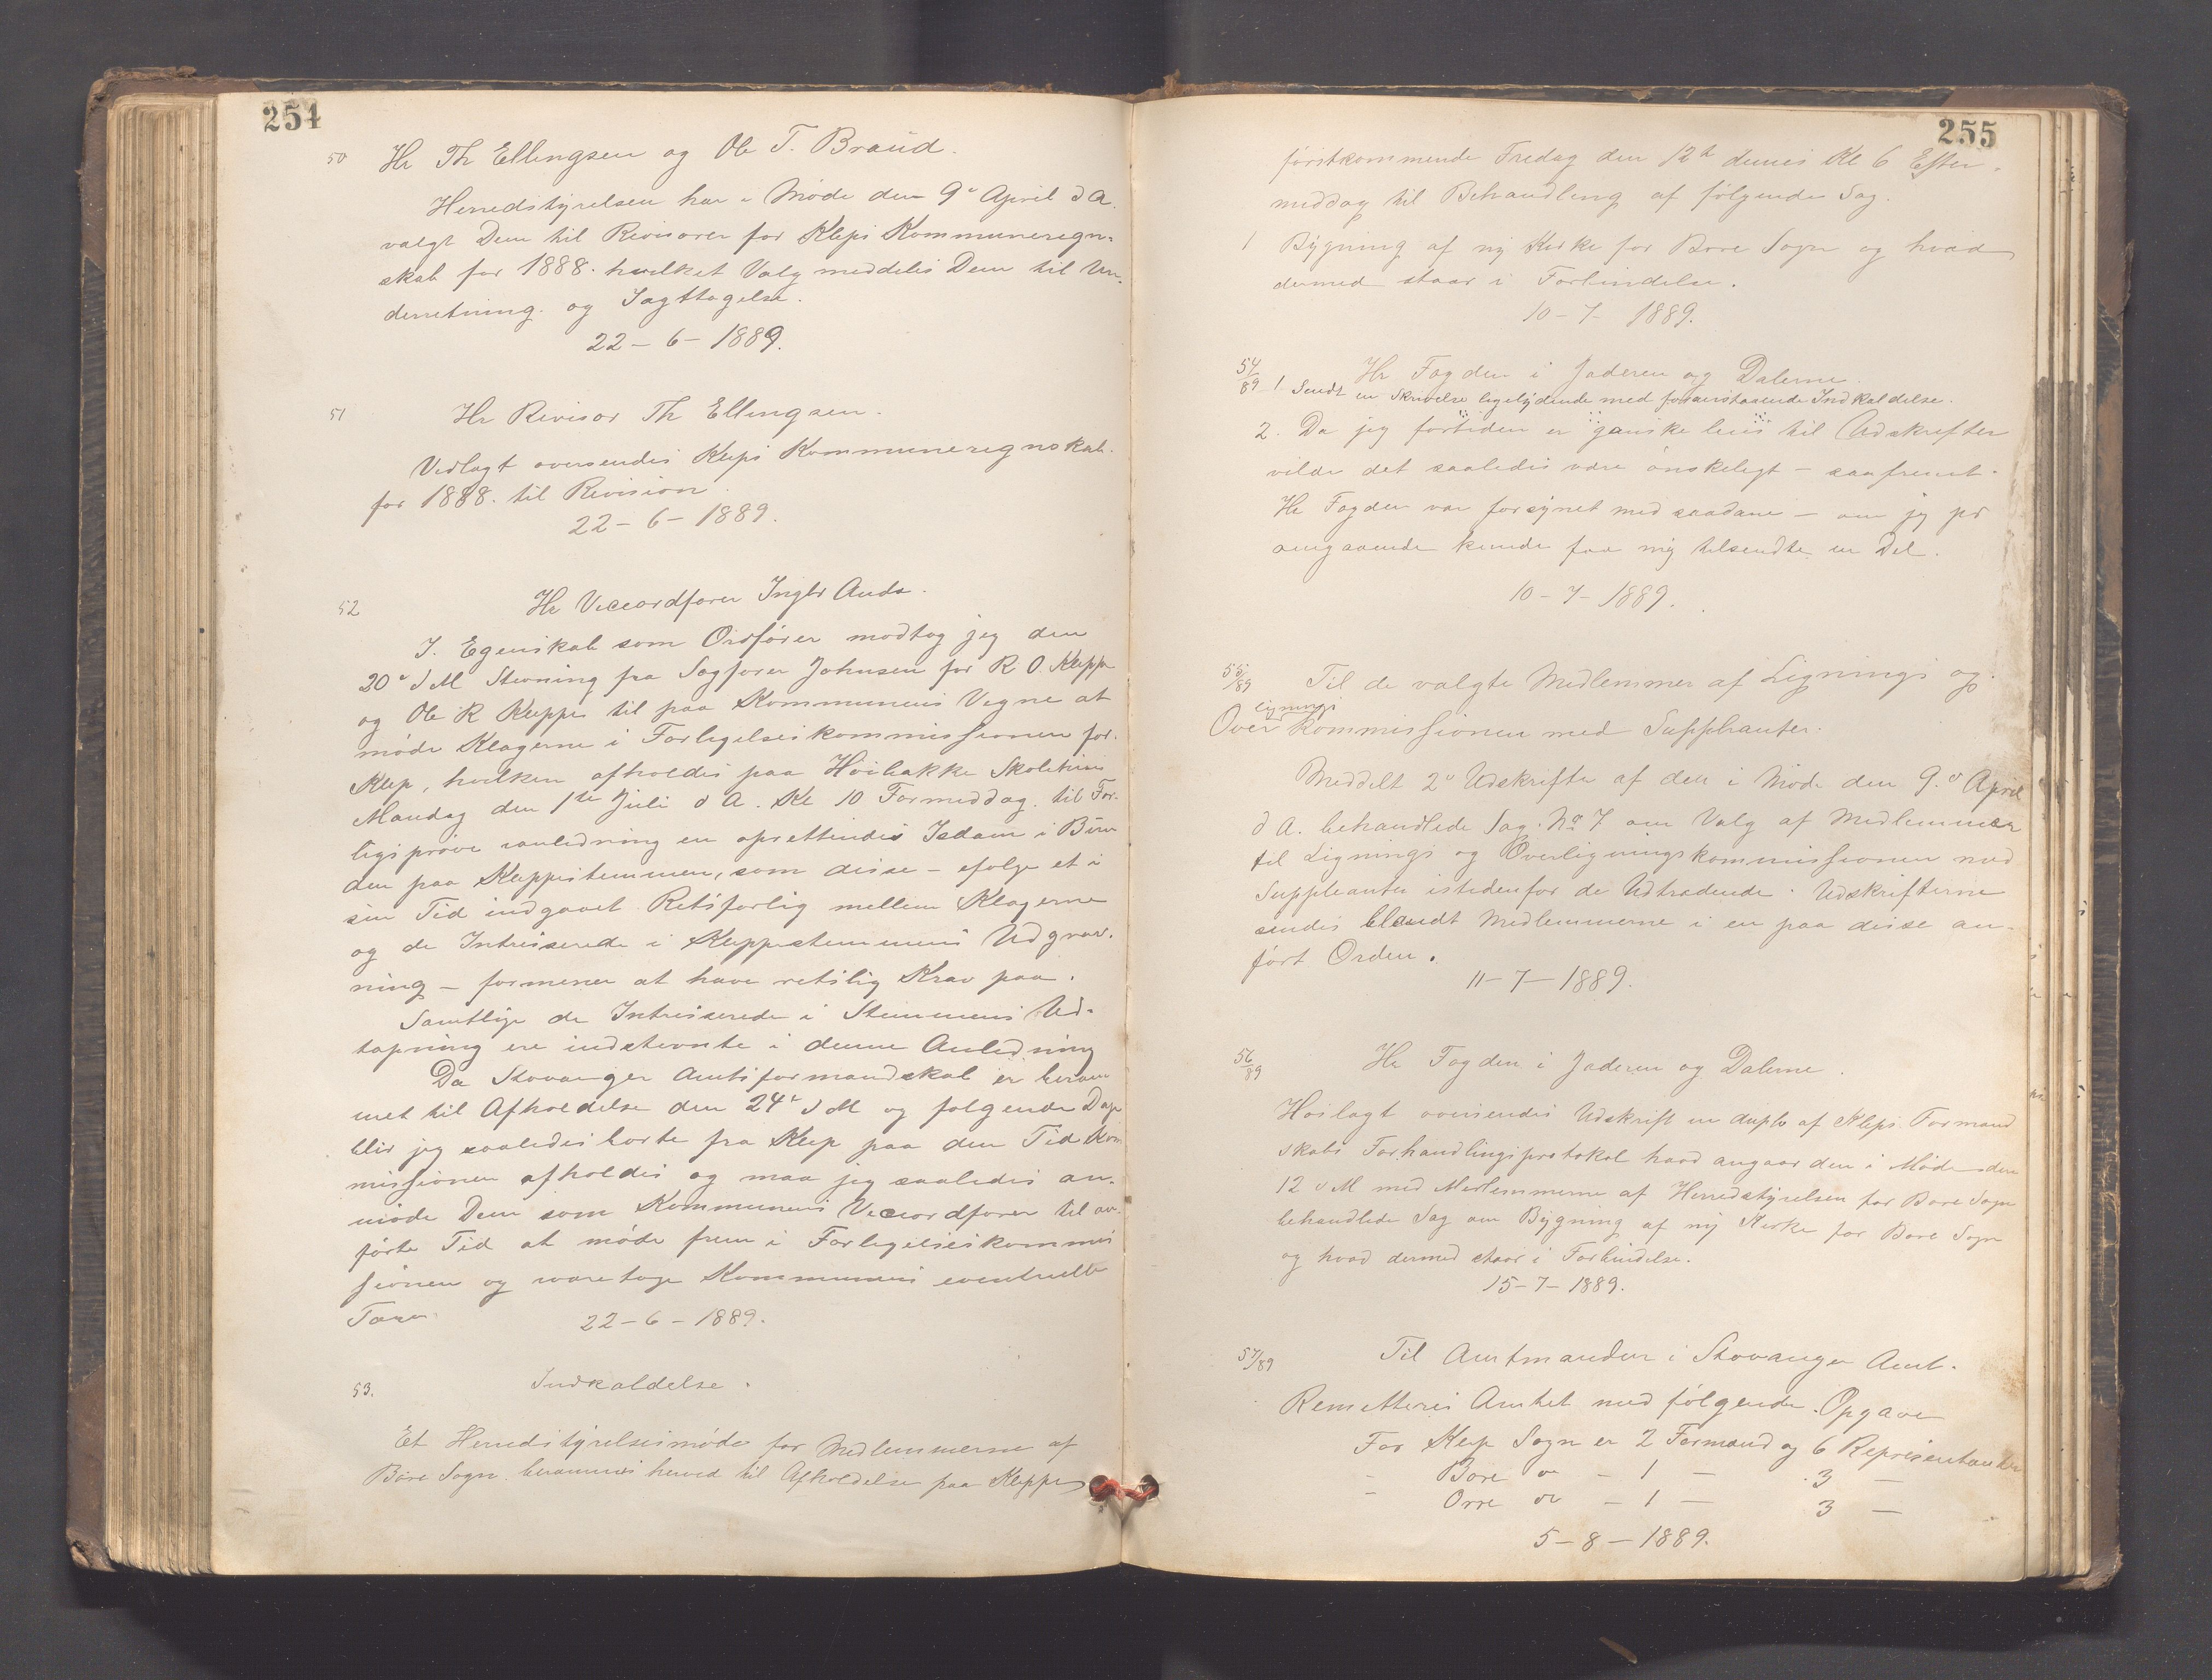 254
50 Hr Th Ellingsen og Ole T. Braud.
Herredstyrelsen har i Møde den 9de April d A.
valgt Dem til Revisorer for Kleps Kommuneregn-
skab for 1888. hvilket Valg meddeles Dem til Un-
derretning. og Iagttagelse.
22 – 6 – 1889.
51 Hr Revisor Th Ellingsen.
Vedlagt oversendes Kleps Kommuneregnskab.
for 1888. til Revision.
22 – 6 – 1889.
52 Hr Viceordfører Ingbr Auda.
I. Egenskab som Ordfører modtog jeg den
20de d M Stevning fra Sagfører Johnsen for R O. Klepp
og Ole R Kleppe til paa Kommunens Vegne at
møde Klagerne i Forligelseskommissionen for.
Klep, hvilken afholdes paa Høibakke Skolehus
Mandag den 1ste Juli d A. Kl 10 Formiddag. til For-
ligsprøve anledning en oprettendes Isdam i
den paa Kleppestemmen, som disse – efølge et i
sin Tid indgaaet Retsforlig mellem Klagerne
og de Intresserede i Kleppestemmens Udgrav-
ning – formener at have retslig Krav paa.
Samtlige de Intresserede i Stemmens Ud-
tapning ere indstevnte i denne Anledning
Da Stavanger Amtsformandskab er beram-
met til Afholdelse den 24de d M og følgende Dage
blir jeg saaledes borte fra Klep paa den Tid Kom
missionen afholdes og maa jeg saaledes an-
mode Dem som Kommunens Viceordfører til an-
førte Tid at møde frem i Forligelseskommis
sionen og varetage Kommunens eventuelle
Tarv.
22 – 6 – 1889.
53. Indkaldelse.
Et Herredstyrelsesmøde for Medlemmerne af
Bore Sogn. berammes herved til Afholdelse paa Kleppe
255
førstkommende Fredag den 12te dennes Kl 6 Efter-
middag til Behandling af følgende Sag.
1 Bygning af ny Kirke for Bore Sogn og hvad
dermed staar i Forbindelse.
10 – 7 – 1889.
54/89 Hr Fogden i Jæderen og Dalerne.
1 Sendt en Skrivelse ligelydende med foranstaaende Indkaldelse.
2. Da jeg fortiden er ganske lens til Udskrifter
vilde det saaledes være ønskeligt – saafremt.
Hr Fogden var forsynet med saadane – om jeg pr
omgaaende kunde faa mig tilsendte en Del.
10 – 7 – 1889.
55/89 Til de valgte Medlemmer af Lignings og
Over lignings kommissionen med Supphanter.
Meddelt 2de Udskrifte af den i Møde den 9.de April
d A. behandlede Sag. No 7 om Valg af Medlemmer
til Lignings og Overligningskommissionen med
Suppleanter istedenfor de Udtrædende. Udskrifterne
sendes blandt Medlemmerne i en paa disse an-
ført Orden.
11 – 7 – 1889.
56/89 Hr Fogden i Jæderen og Dalerne.
Hoslagt oversendes Udskrift en duplo af Kleps Formand
skabs Forhandlingsprotokol hvad angaar den i Møde den
12 d M med Medlemmerne af Herredstyrelsen for Bore Sogn
behandlede Sag om Bygning af ny Kirke for Bore Sogn
og hvad dermed staar i Forbindelse.
15 – 7 – 1889.
57/89 Til Amtmanden i Stavanger Amt.
Remitteres Amtet med følgende Opgave
For Klep Sogn er 2 Formænd og 6 Representanter
– Bore do – 1 – 3 –
– Orre do – 1 – 3 –
5 – 8 – 1889.